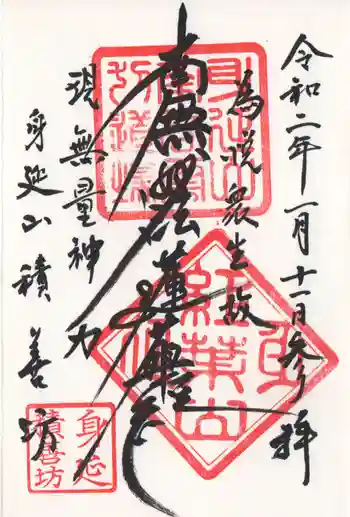 令和二年一月十一日参拝
為説衆生故
南無妙法蓮華経
現無量神力
身延山積善坊
身延
積善坊